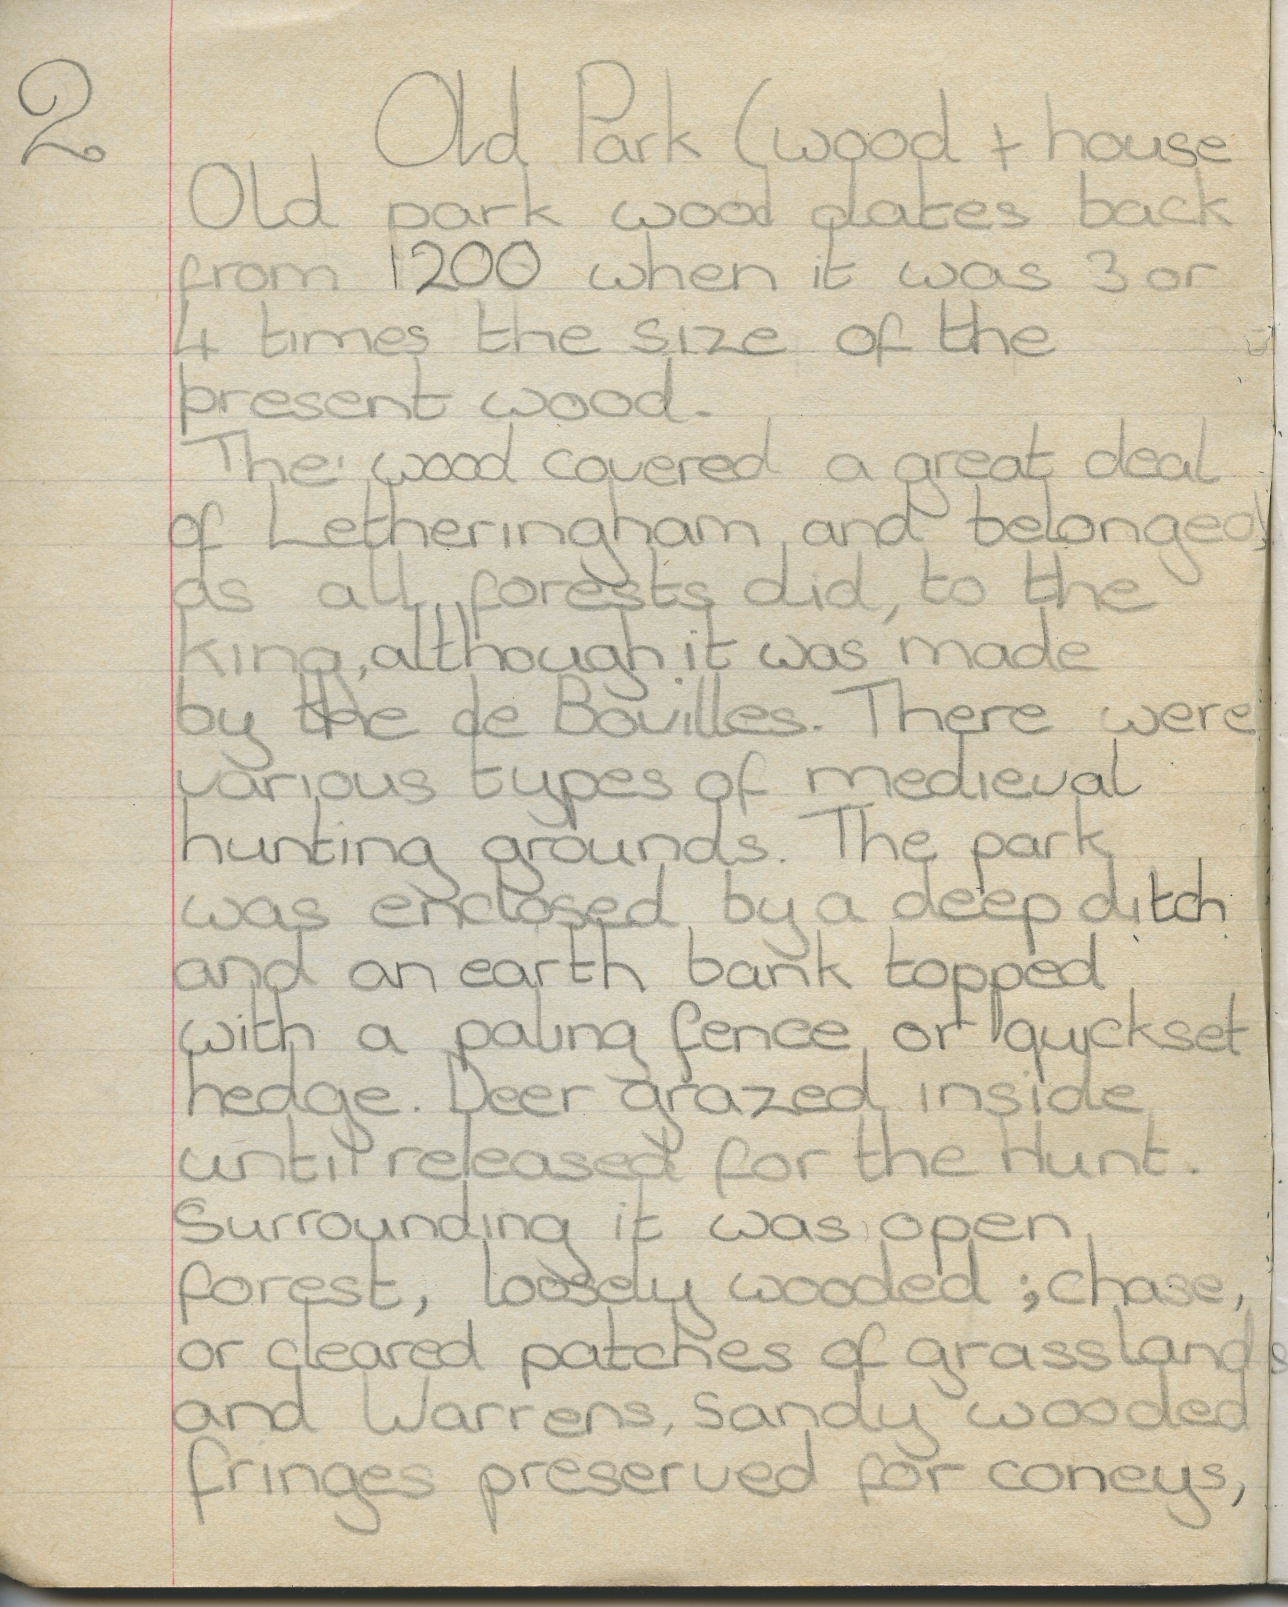 2
Old Park (wood + house
Old park wood dates back
from 1200 when it was 3 or
4 times the size of the
present wood.
The wood covered a great deal
of Letheringham and belonged,
as all forests did, to the
king, although it was made
by the de Bovilles. There were
various types of medieval
hunting grounds. The park
was enclosed by a deep ditch
and an earth bank topped
with a paling fence or quickset
hedge. Deer grazed inside
until released for the Hunt.
Surrounding it was open
forest, loosely wooded; chase,
or cleared patches of grasslands
and Warrens, sandy wooded
fringes preserved for coneys,